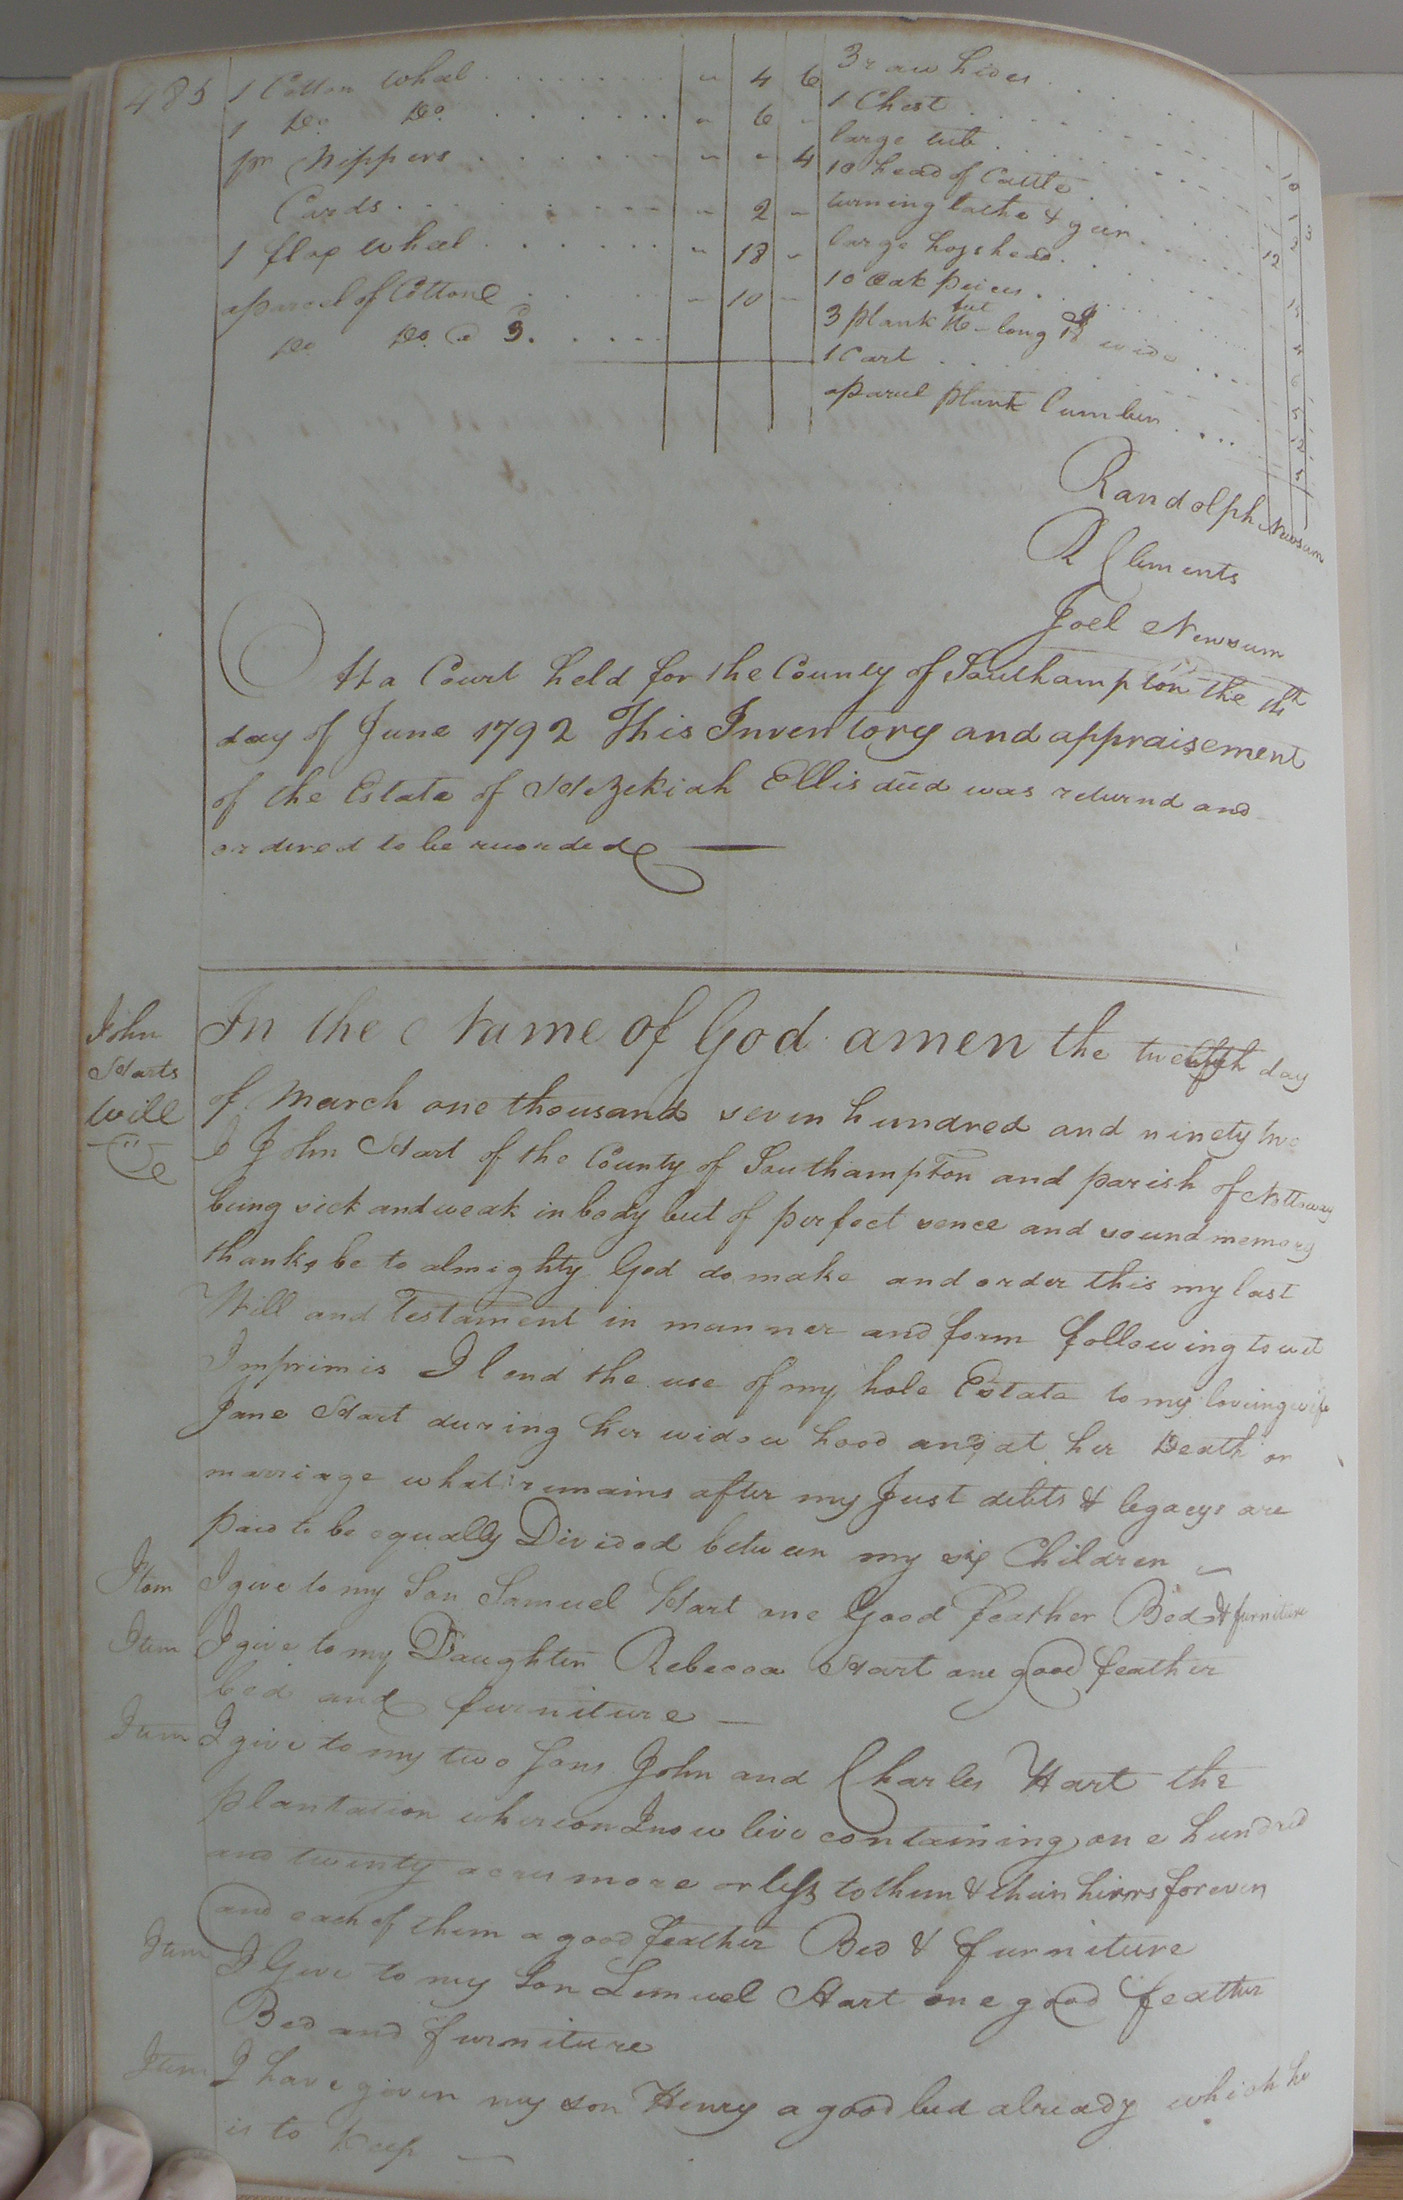 485
1 Cotton Wheel . . . . . . . . " 4 6
1 Do. Do. . . . . . . . " 6 "
pr Nippers . . . . . . . " " 4
Cards . . . . . . . . " 2 "
1 flax wheel . . . . . . . " 18 "
aparcel of Cotton . . . . . " 10 "
Do Do. @ 3. . . . .
3 raw hides
1 Chest
large tub
10 head of Cattle
turning lathe & geer
large hogshead
10 Oak peices
3 plank feet long wide
1 Cart
aparcel plank lumber
Randolph Newsum
R Clements
Joel Newsum
At a Court held for the County of Southampton the
day of June 1792 This Inventory and appraisement
of the Estate of Hezekiah Ellis decd was returnd and
ordered to be recorded
John
Harts
Will
In the Name of God amen the twelfth day
of March one thousand seven hundred and ninety two
I John Hart of the County of Southampton and parish of Nottoway
being sick and weak in body but of perfect sence and sound memory
thanks be to almighty God do make and order this my last
Will and Testament in manner and form following to wit
Imprimis I lend the use of my hole Estate to my loving wife
Jane Hart during her widow hood and at her Death or
marriage what remains after my Just debts & legacys are
paid to be equally Divided between my six Children
Item I give to my Son Samuel Hart one Good Feather Bed & furniture
Item I give to my Daughter Rebecca Hart one good feather
bed and furniture
Item I give to my two Sons John and Charles Hart the
plantation whereon I now live containing one hundred
and twenty acres more or less to them & their heirs forever
and each of them a good feather Bed & furniture
Item I Give to my Son Lemuel Hart one good feather
Bed and furniture
Item I have given my son Henry a good bed already which he
is to keep